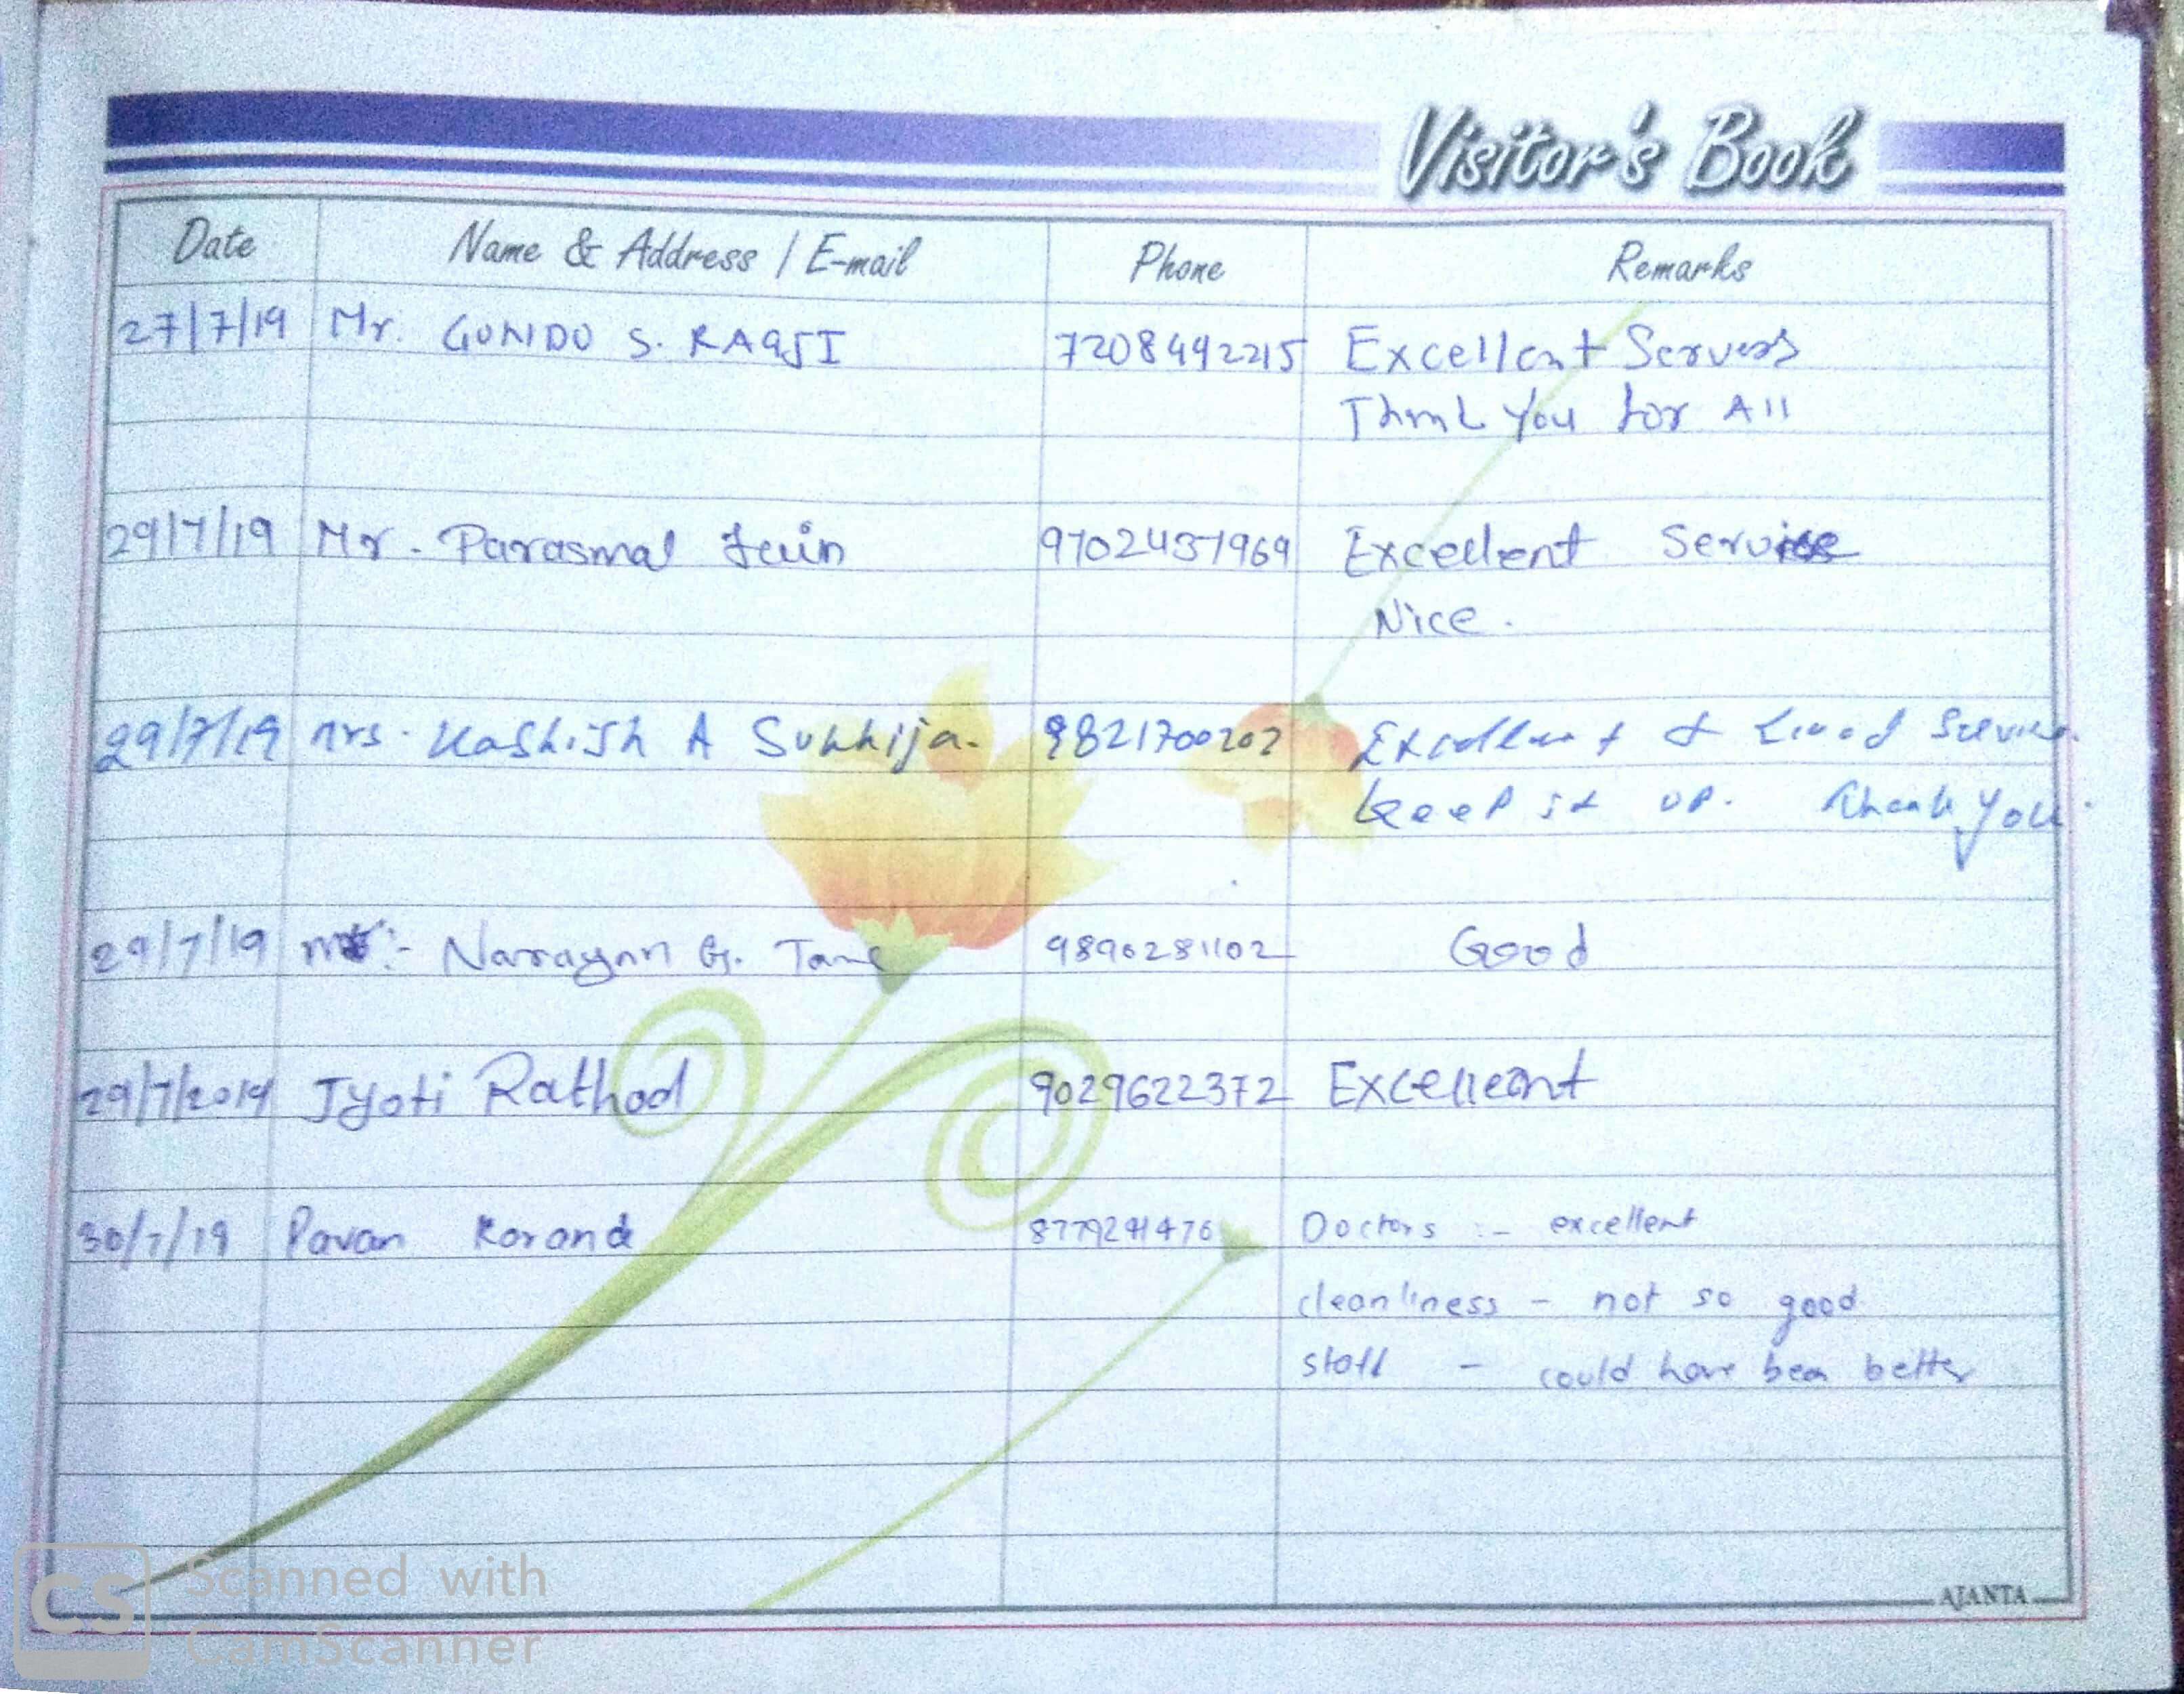 Visitor's Book
Date Name & Address / E-mail Phone Remarks
27/7/19 Mr. GUNDO S. 7208492215 Excellent
Thank You for All
29/7/19 Mr. Parasmal Jain 9702437969 Excellent Service
Nice.
29/7/19 Mrs. Kashish A Sukhija. 9821700202 Excellent & Good Service.
keep it up. Thank you.
29/7/19 Narayan G. 9890281102 Good
29/7/2019 Jyoti Rathod 9029622372 Excelleant
30/7/19 Pavan Korand Doctors :- excellent
cleanliness - not so good
staff - could have been better
AJANTA
CS Scanned with
CamScanner